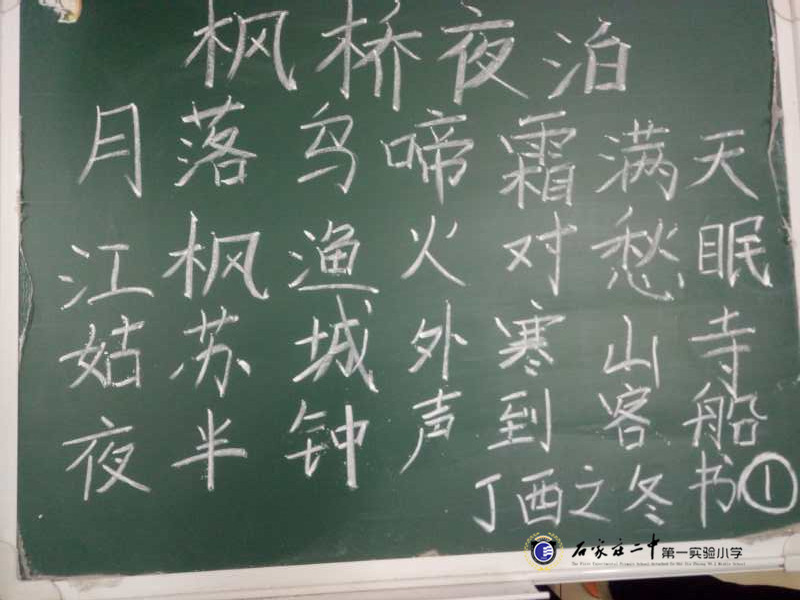 枫桥夜泊
月落乌啼霜满天
江枫渔火对愁眠
姑苏城外寒山寺
夜半钟声到客船
丁酉之冬书①
石家庄二中第一实验小学
The First Experimental Primary School Attached to Shi Jia Zhuang NO.2 Middle School